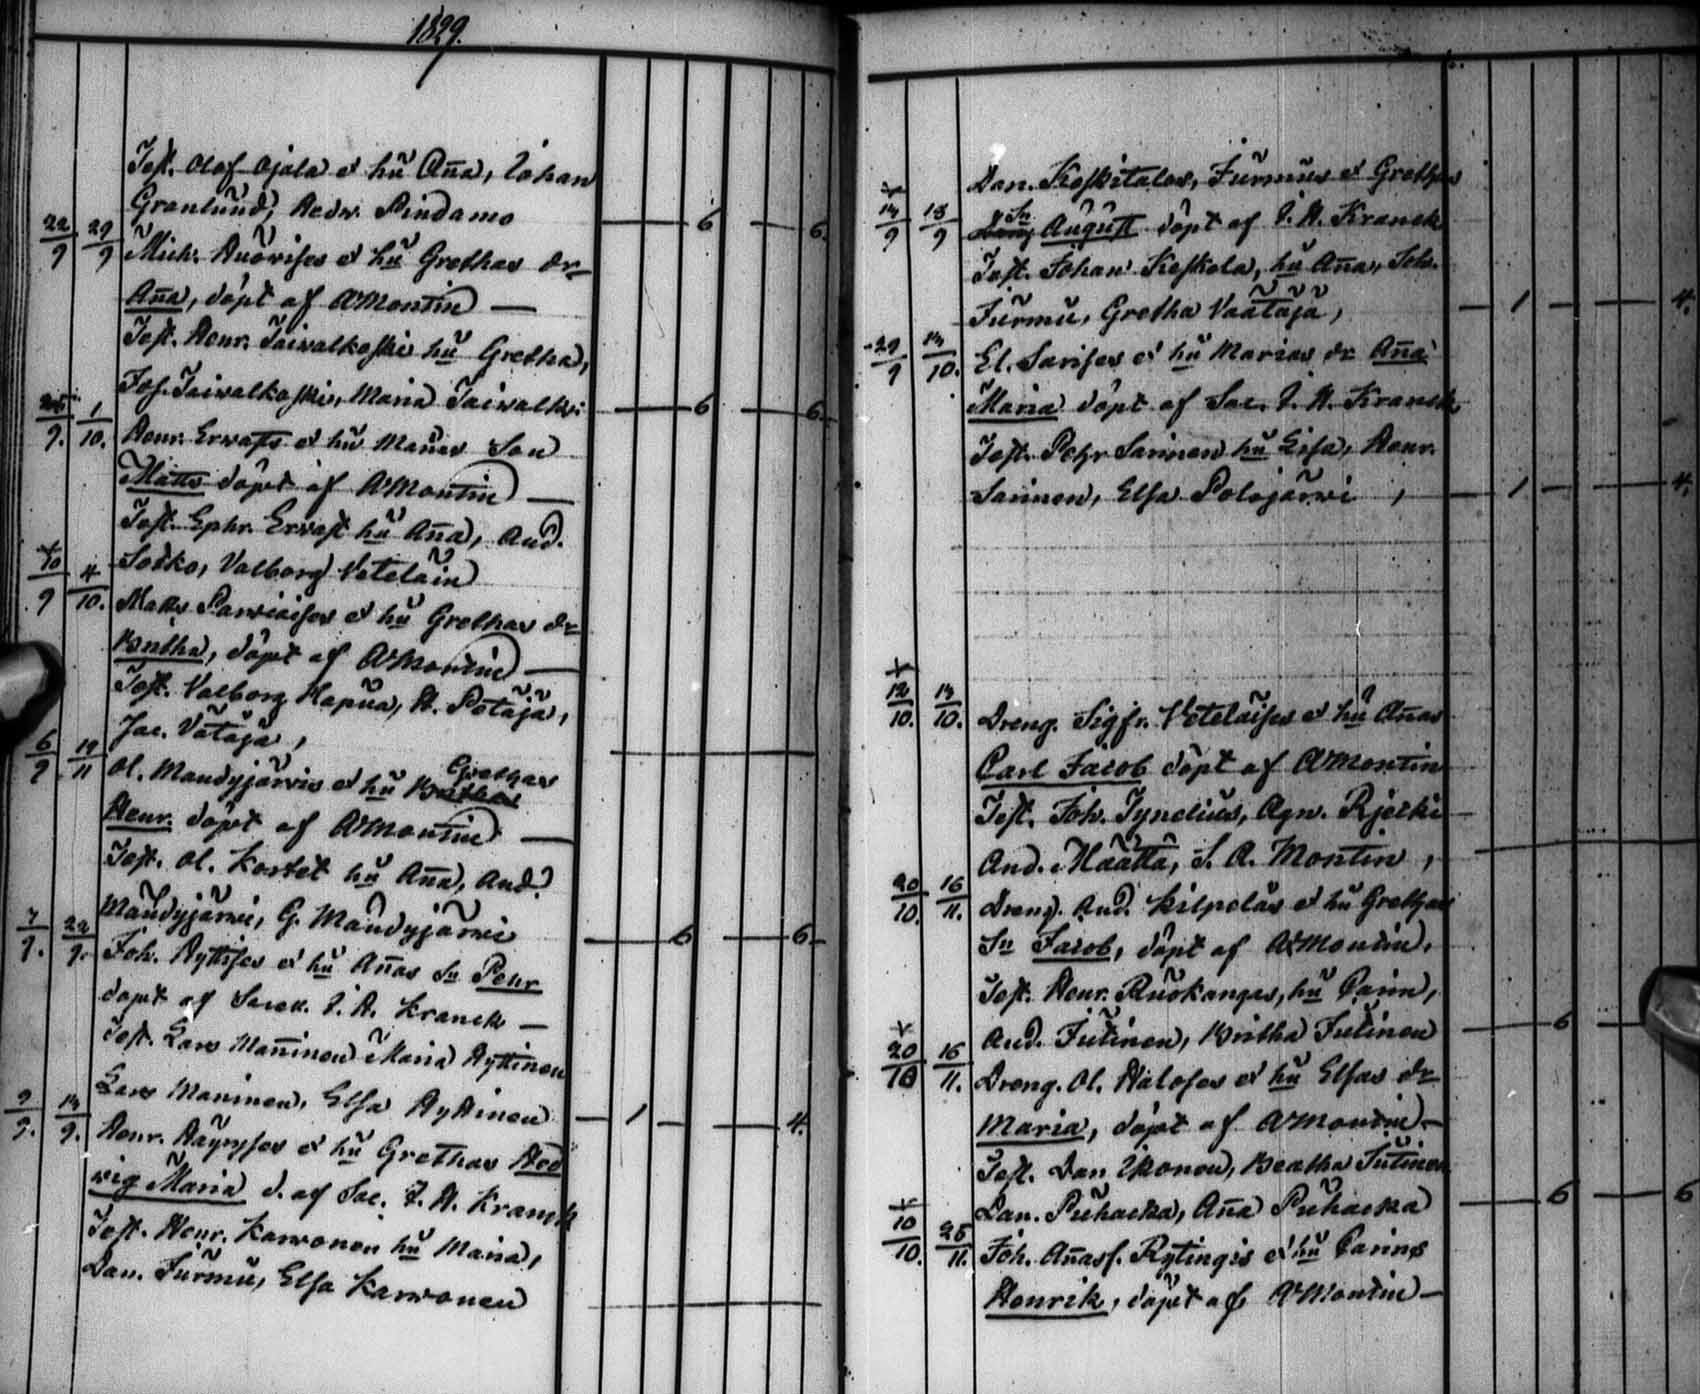 1829.
Test. Olof Ojala et hū Aña, Johan
Granlund, Hedv. Pindamo 6 6.
22/9 29/9 Mich. Auvrises et hū Grethas dr
Aña, döpt af A Montin —
Test. Henr. Taivalkoski hū Gretha,
Jos. Taivalkoski, Maria Taivalk: 6 6
9. 1/10. Henr. Ervasts et hū Mañas Son
Matts döpt af A Montin —
Test. Ephr. Ervast hū Aña, And.
Sotko, Valborg Vetelain
+ 10/9 4/10. Matts Parviaises et hū Grethas dr
Britha, döpt af A Montin —
Test. Valborg Hapua, H. Potäjä,
Jac. Vätäjä,
6/9 19/11 Ol. Mandyjärvis et hū Grethas
Henr. döpt af A Montin —
Test. Ol. Kortet hū Aña, And.
Mandyjärvi, G. Mandyjärvi 6 6
7/9. 22/9. Joh. Hyttises et hū Añas Sn Pehr
döpt af Sacell. J. H. Kranck —
Test. Lars Mañinen Maria Hyttinen
Lars Maninen, Elsa Hyttinen 1 4.
9/9. 14/9. Henr. Häyrysses et hū Grethas Hed
vig Maria d. af Sac. J. H. Kranck
Test. Henr. Karvonen hū Maria,
Dan. Jurmu, Elsa Karvonen
Dan. Koskitalos, Jurmus et Grethas
+ 14/9 18/9 Sn August döpt af J. H. Kranck
Test. Johan Keskola, hū Aña, Joh.
Jurmu, Gretha Väätäjä, 1 4.
29/9 14/10. El. Sarises et hū Marias dr Aña
Maria döpt af Sac. J. H. Kranck
Test. Pehr Sarinen hū Lisa, Henr.
Sarinen, Elsa Polojärvi, 1 4.
+ 12/10. 14/10. Dreng. Sigfr. Veteläises et hū Añas
Carl Jacob döpt af A Montin
Test. Joh. Tynelius, Agn. Rjecki
And. Määttä, S. A. Montin,
20/10. 16/11. Dreng. And. Kilpeläs et hū Grethas
Sn Jacob, döpt af A Montin,
Test. Henr. Ruokanges, hū Carin,
And. Jutinen, Britha Jutinen 6
+ 20/10 16/11. Dreng. Ol. Haloses et hū Elsas dr
Maria, döpt af A Montin —
Test. Dan. Ikonen, Beatha Jutinen
Dan. Puhacka, Aña Puhacka 6 6
+ 10/10. 25/11. Joh. Añass. Rytingis et hū Carins
Henrik, döpt af A Montin —